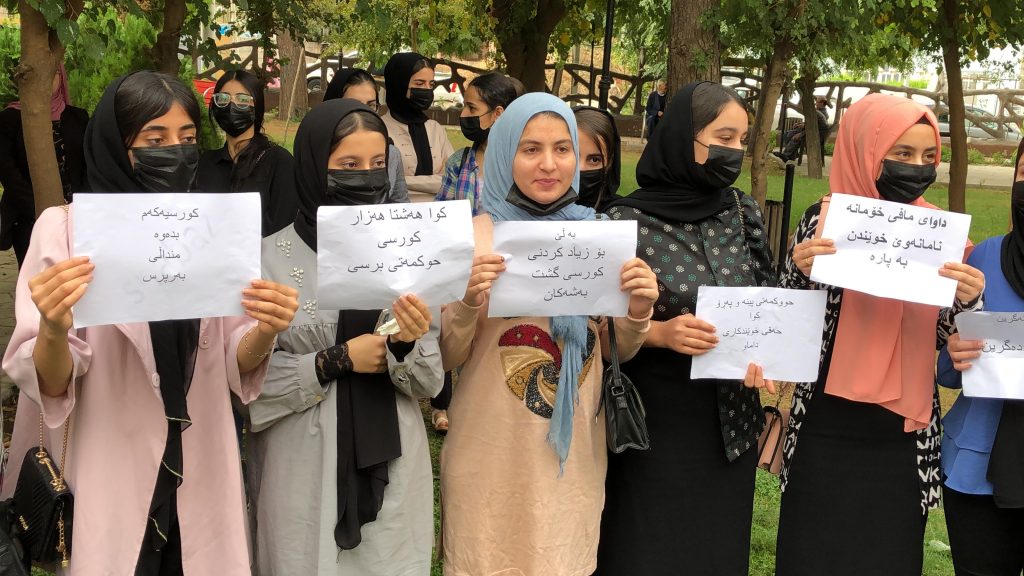 کورسیەکەم
بدەوە
منداڵی
بەرپرس
کوا هەشتا هەزار
کورسی
حوکمەتی برسی
بەڵێ
بۆ زیاد کردنی
کورسی گشت
بەشەکان
حووکمەتی پینە و پەڕۆ
کوا
حەقی خوێندکاری
داماو
داوای مافی خۆمانە
نامانەوێ خوێندن
بە پارە
دەگرین